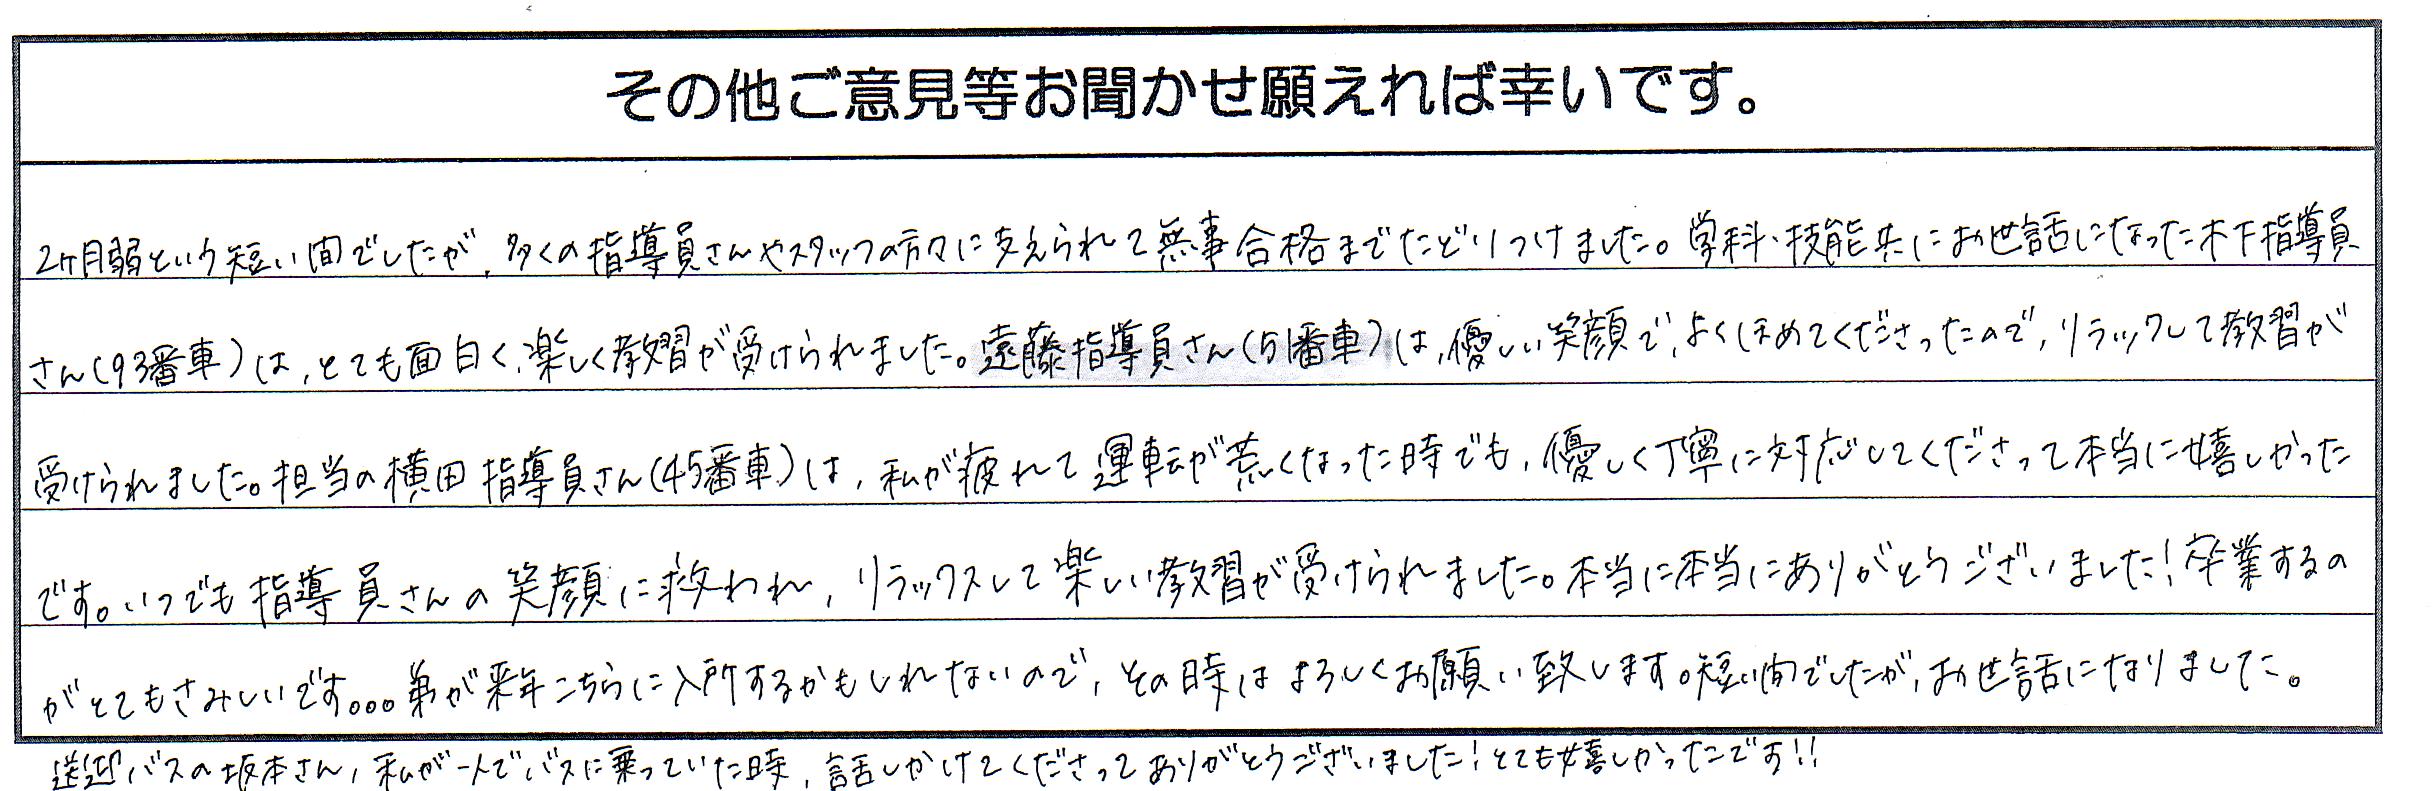 その他ご意見等お聞かせ願えれば幸いです。
2ヶ月弱という短い間でしたが、多くの指導員さんやスタッフの方々に支えられて無事合格までたどりつけました。学科・技能共にお世話になった木下指導員
さん(93番車)は、とても面白く、楽しく教習が受けられました。遠藤指導員さん(51番車)は、優しい笑顔で、よくほめてくださったので、リラックして教習が
受けられました。担当の横田指導員さん(45番車)は、私が疲れて運転が荒くなった時でも、優しく丁寧に対応してくださって本当に嬉しかった
です。いつでも指導員さんの笑顔に救われ、リラックスして楽しい教習が受けられました。本当に本当にありがとうございました!卒業するの
がとてもさみしいです。。。弟が来年こちらに入所するかもしれないので、その時はよろしくお願い致します。短い間でしたが、お世話になりました。
送迎バスの坂本さん、私が一人でバスに乗っていた時、話しかけてくださってありがとうございました!とても嬉しかったです!!